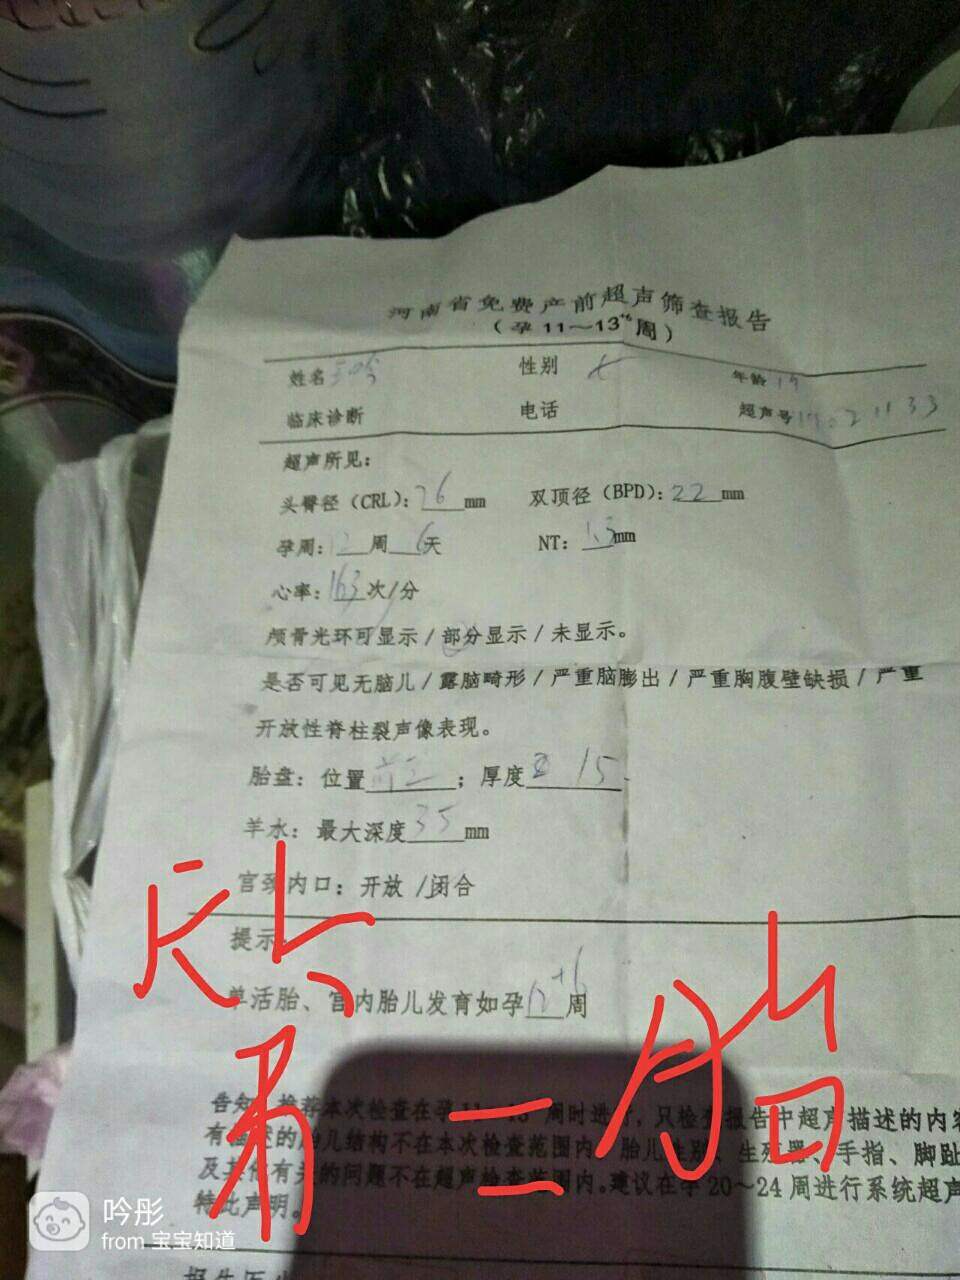 河南省免费产前超声筛查报告
（孕11～13⁺⁶周）
姓名 性别 年龄
临床诊断 电话 超声号
超声所见：
头臀径（CRL）：76mm 双顶径（BPD）：22mm
孕周：12周6天 NT：1.3mm
心率：163次/分
颅骨光环可显示/部分显示/未显示。
是否可见无脑儿/露脑畸形/严重脑膨出/严重胸腹壁缺损/严重
开放性脊柱裂声像表现。
胎盘：位置前壁；厚度15
羊水：最大深度35mm
宫颈内口：开放/闭合
提示
单活胎、宫内胎儿发育如孕12⁺⁶周
第二胎
告知 推荐本次检查在孕11 周时进行，只检查报告中超声描述的内容
有 的胎儿结构不在本次检查范围内 胎儿性别、生殖器、手指、脚趾
及其他有关的问题不在超声检查范围内。建议在孕20～24周进行系统超声
特此声明。
吟彤
from 宝宝知道